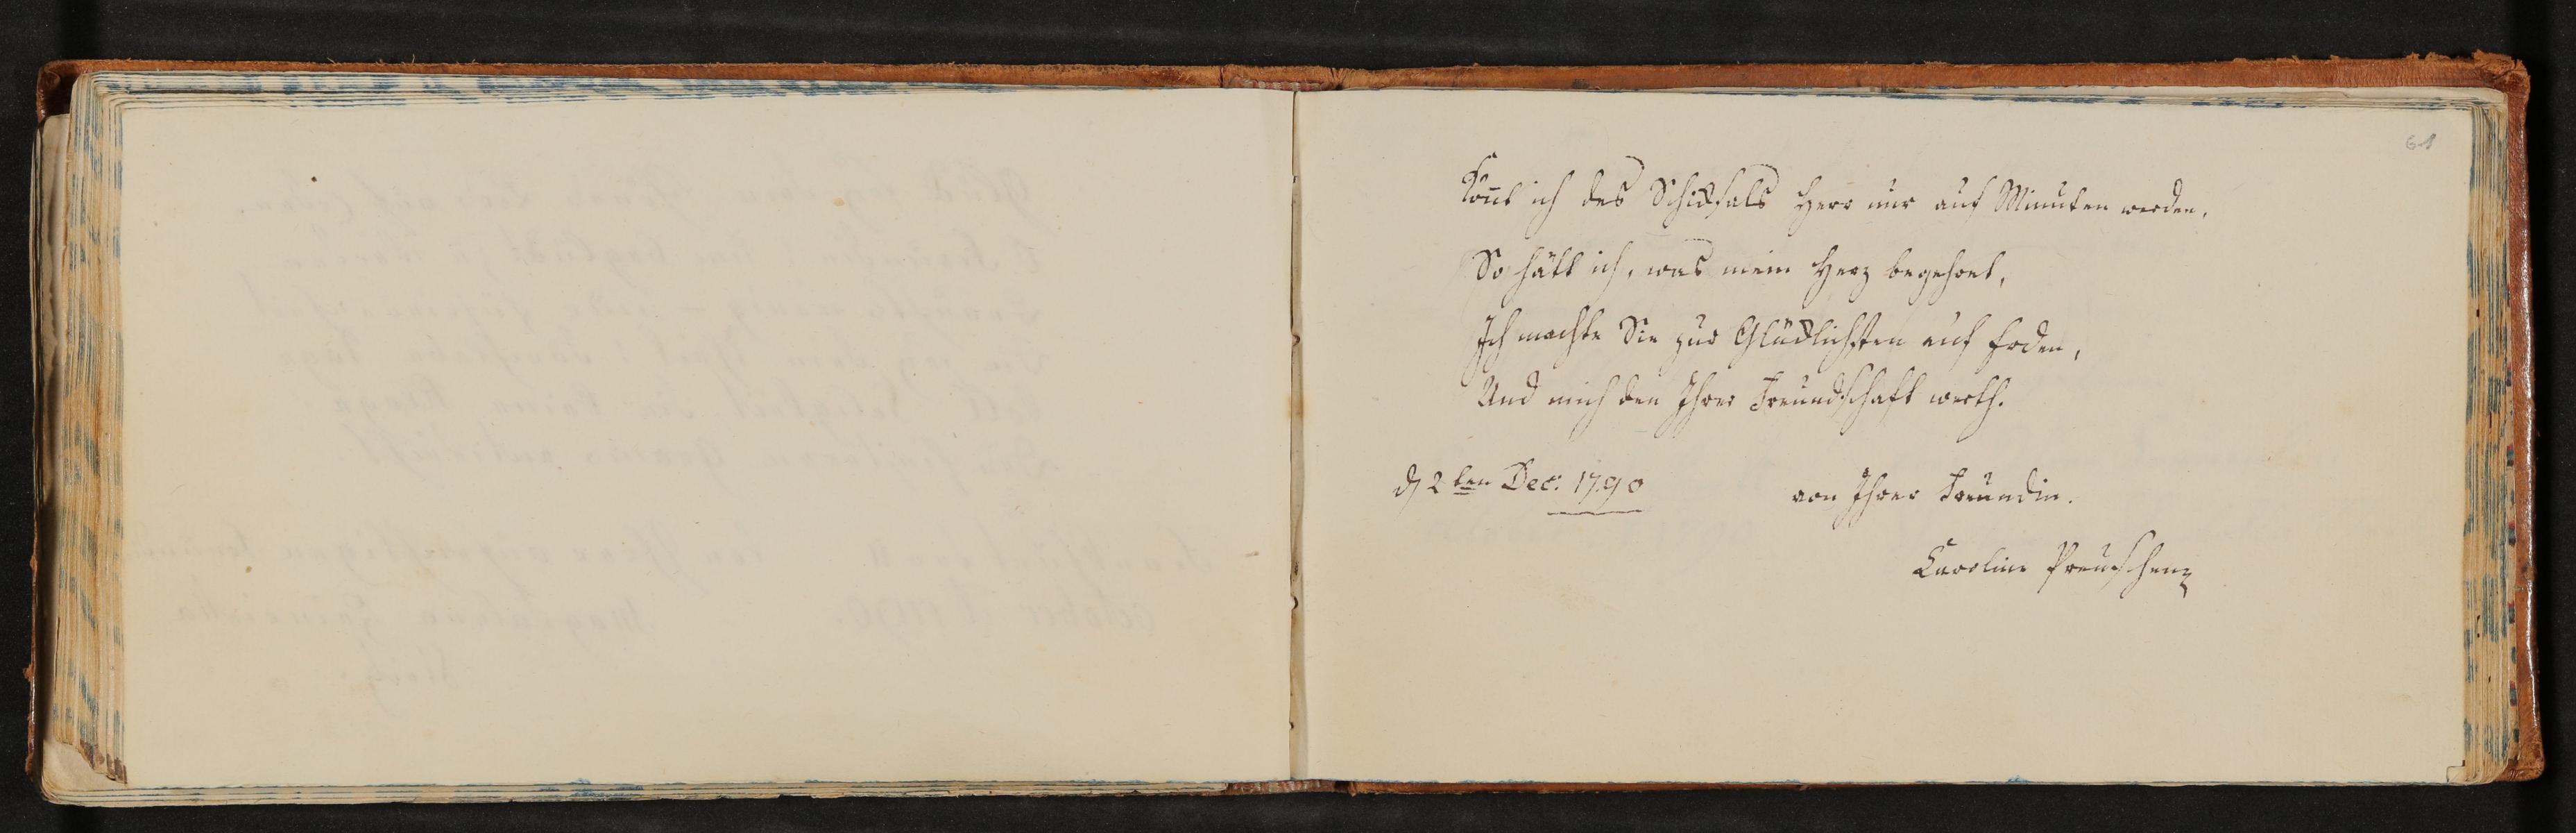 61
Kön̄t ich des Schicksals Herr nur auf Minuten werden,
So hätt ich, was mein Herz begehret,
Ich machte Sie zur Glücklichsten auf Erden,
Und mich den Ihrer Freundschaft werth.
d 2ten Dec: 1790
von Ihrer Freundin.
Caroline Preuschen